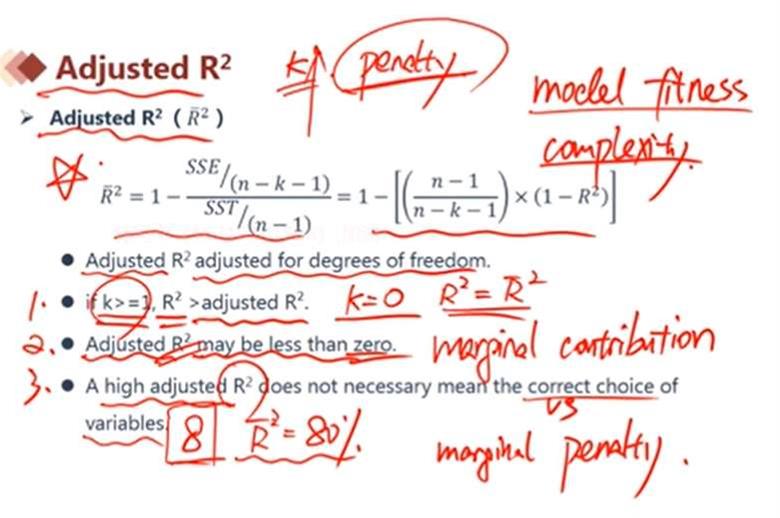 Adjusted R²
k↑ penalty
model fitness
complexity.
➢ Adjusted R² ( R̄² )
☆ R̄² = 1 − SSE/(n − k − 1) / SST/(n − 1) = 1 − [((n − 1)/(n − k − 1)) × (1 − R²)]
● Adjusted R² adjusted for degrees of freedom.
1. ● if k>=1, R² >adjusted R². k=0 R² = R̄²
2. ● Adjusted R² may be less than zero. marginal contribution
3. ● A high adjusted R² does not necessary mean the correct choice of
variables. 8 R̄² = 80%
vs
marginal penalty.